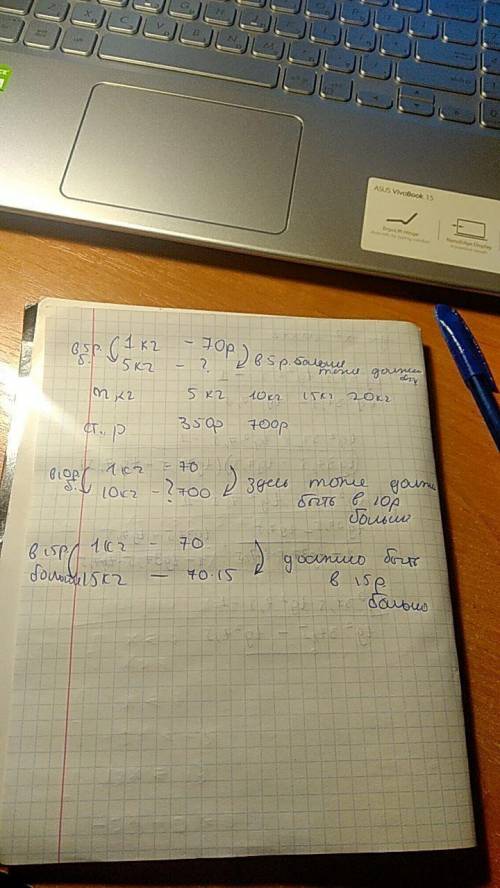 ASUS VivoBook 15
в 5р. 1кг - 70р
б. 5кг - ? в 5р. больше
тоже должно
быть
m, кг 5 кг 10кг 15кг 20кг
ст., р 350р 700р
в 10р 1кг = 70
б. 10кг - ? 700 Здесь тоже должн
быть в 10р
больше
в 15р. 1кг = 70
больше 15кг — 70·15
должно быть
в 15р
больше